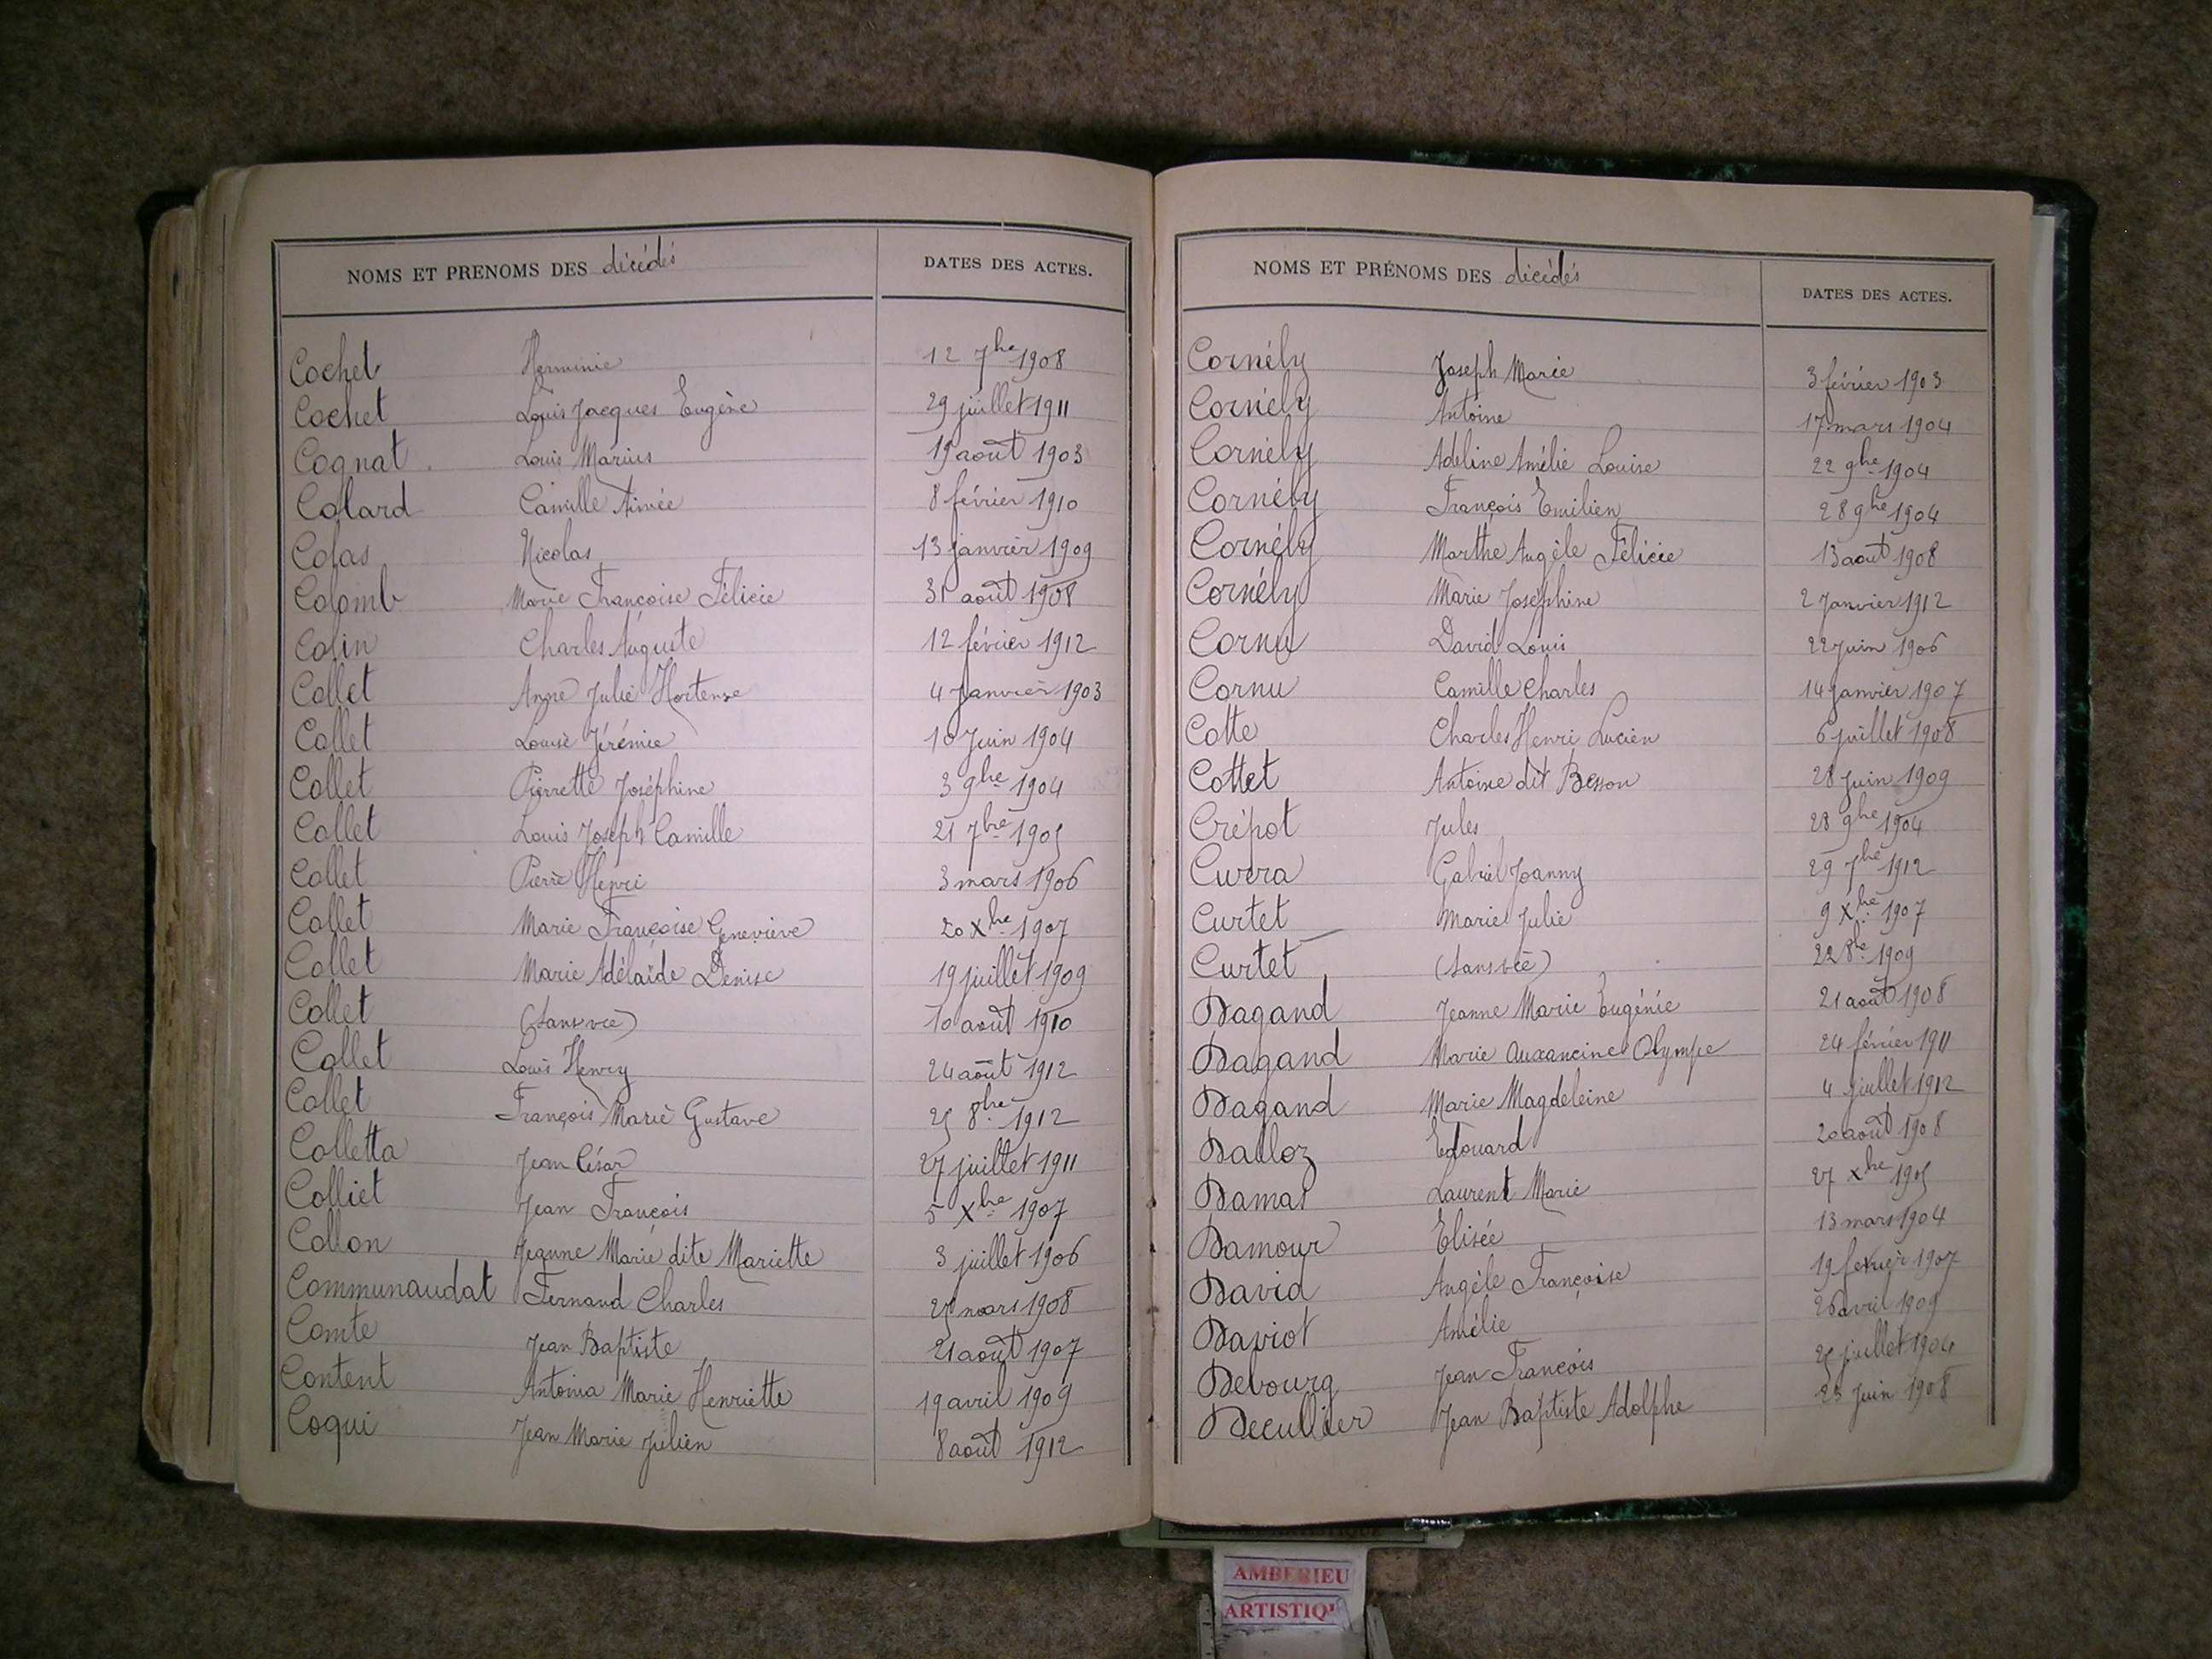 NOMS ET PRENOMS DES décédés DATES DES ACTES.
Cochet Herminie 12 7bre 1908
Cochet Louis Jacques Eugène 29 juillet 1911
Cognat Louis Marius 19 août 1903
Colard Camille Aimée 8 février 1910
Colas Nicolas 13 janvier 1909
Colomb Marie Françoise Félicie 31 août 1908
Colin Charles Auguste 12 février 1912
Collet Anne Julie Hortense 4 janvier 1903
Collet Louise Jérémie 10 Juin 1904
Collet Pierrette Joséphine 3 9bre 1904
Collet Louis Joseph Camille 21 7bre 1905
Collet Pierre Henri 3 mars 1906
Collet Marie Françoise Geneviève 20 Xbre 1907
Collet Marie Adélaïde Denise 19 juillet 1909
Collet (sans vie) 10 août 1910
Collet Louis Henry 24 août 1912
Collet François Marie Gustave 25 8bre 1912
Colletta Jean César 27 juillet 1911
Colliet Jean François 5 Xbre 1907
Collon Jeanne Marie dite Mariette 3 juillet 1906
Communaudat Fernand Charles 25 mars 1908
Comte Jean Baptiste 21 août 1907
Content Antonia Marie Henriette 19 avril 1909
Coqui Jean Marie Julien 8 août 1912
NOMS ET PRÉNOMS DES décédés DATES DES ACTES.
Cornély Joseph Marie 3 février 1903
Cornély Antoine 17 mars 1904
Cornély Adeline Amélie Louise 22 9bre 1904
Cornély François Emilien 28 9bre 1904
Cornély Marthe Angèle Félicie 13 août 1908
Cornély Marie Joséphine 2 Janvier 1912
Cornu David Louis 22 juin 1906
Cornu Camille Charles 14 janvier 1907
Cotte Charles Henri Lucien 6 juillet 1908
Cottet Antoine dit Besson 28 juin 1909
Crépot Jules 28 9bre 1904
Cuera Gabriel Joanny 29 7bre 1912
Curtet Marie Julie 9 Xbre 1907
Curtet (sans vie) 22 8bre 1909
Dagand Jeanne Marie Eugénie 21 août 1908
Dagand Marie Auxancine Olympe 24 février 1911
Dagand Marie Magdeleine 4 juillet 1912
Dalloz Edouard 20 août 1908
Damas Laurent Marie 27 Xbre 1905
Damour Elisée 13 mars 1904
David Angèle Françoise 19 février 1907
Daviot Amélie 26 avril 1909
Debourg Jean François 25 juillet 1904
Decullier Jean Baptiste Adolphe 23 Juin 1908
AMBERIEU